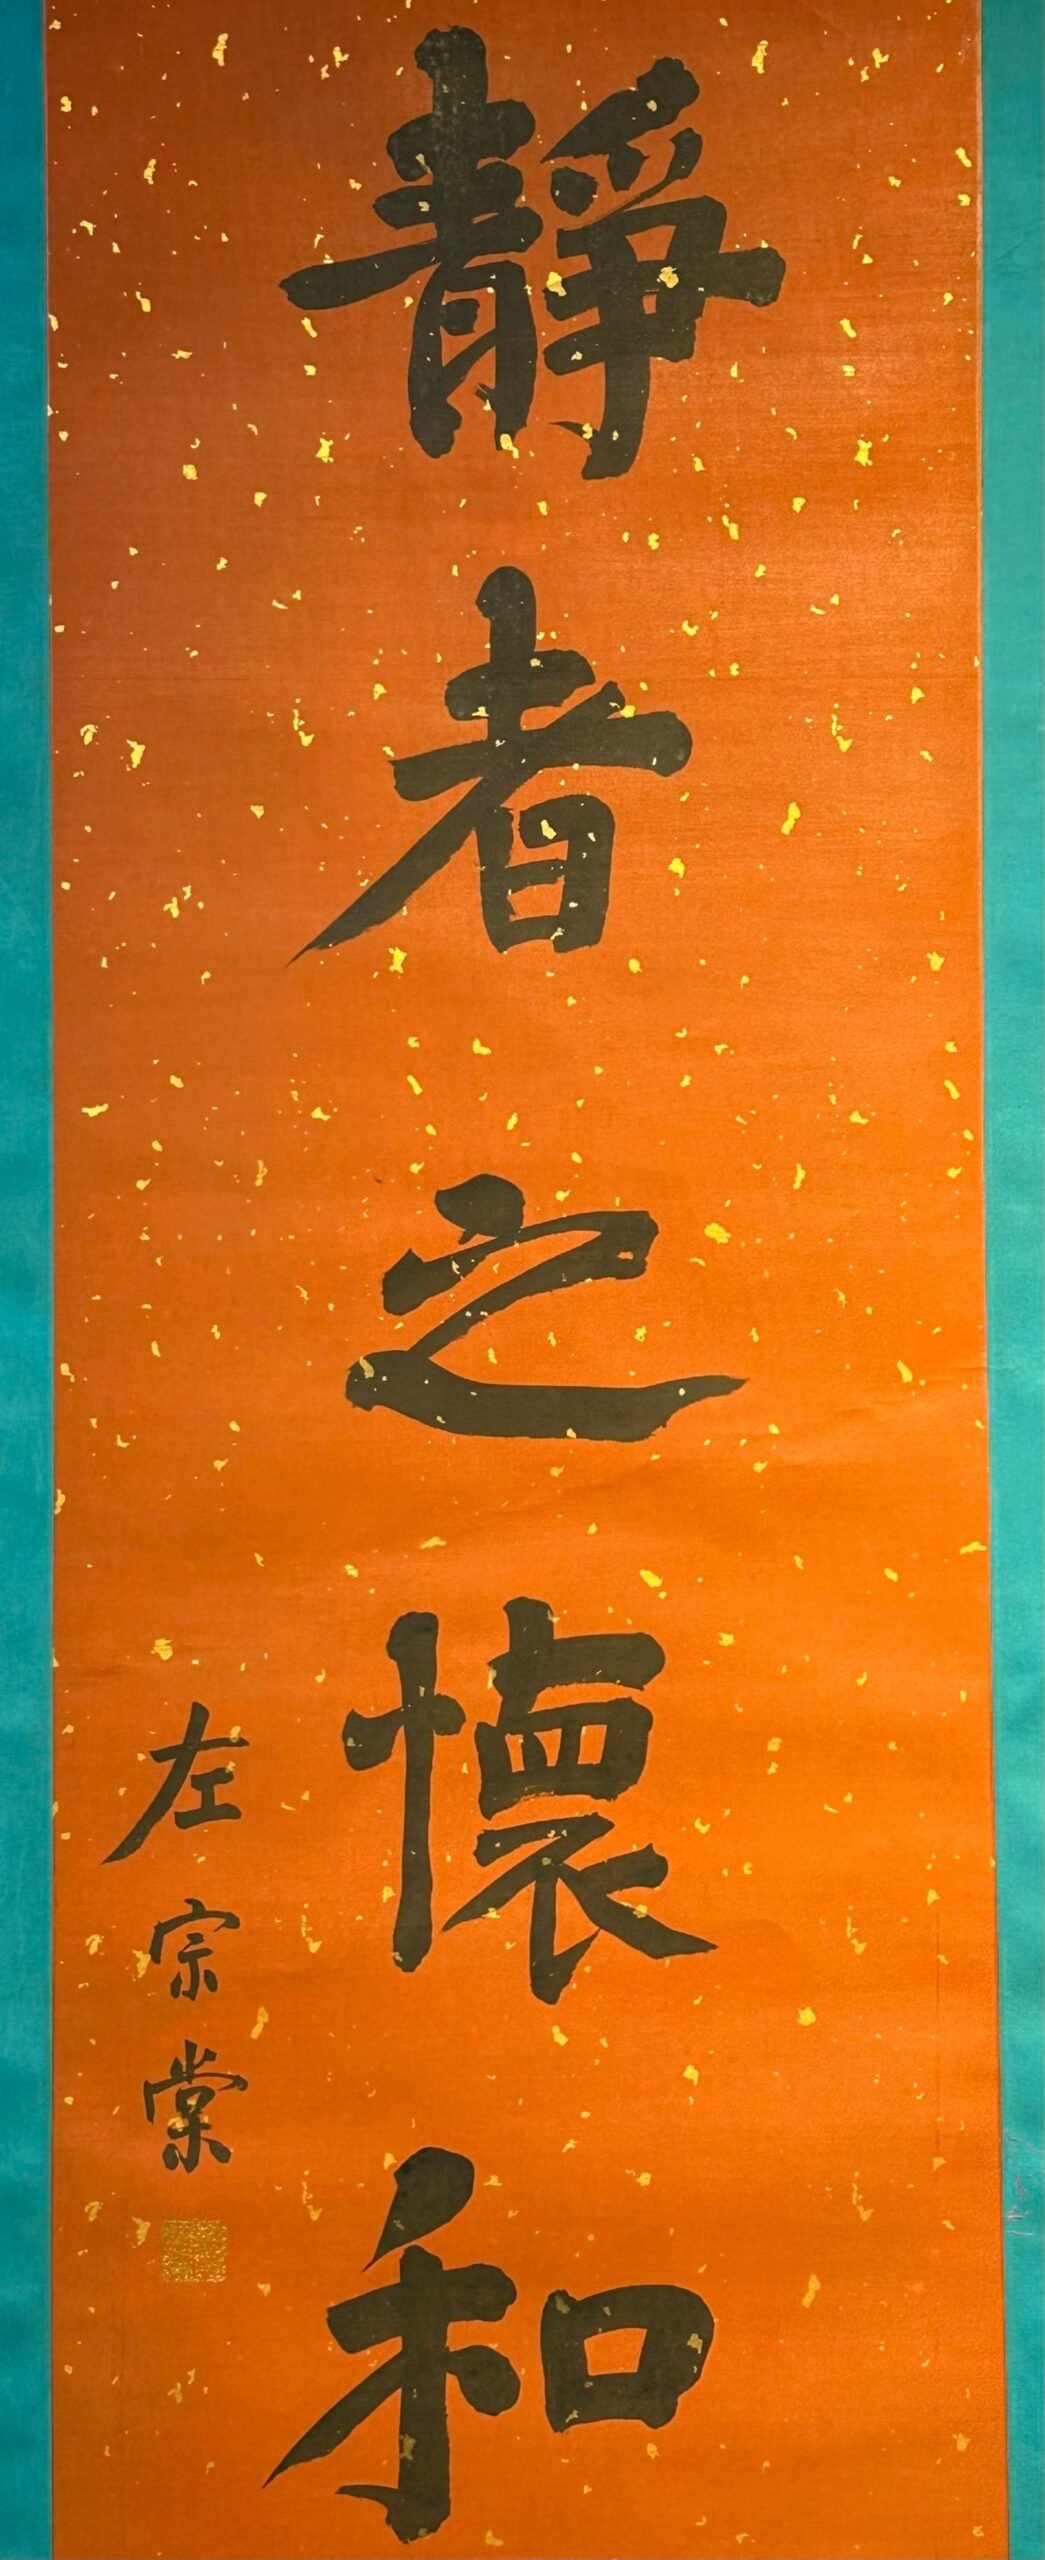 靜者之懷和
左宗棠